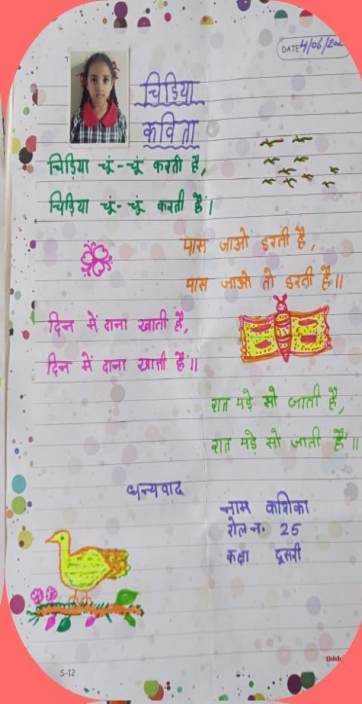 DATE 4/06/202
चिड़िया
कविता
चिड़िया चूं-चूं करती है,
चिड़िया चूं-चूं करती है।
पास जाओ डरती है,
पास जाओ तो डरती है॥
दिन में दाना खाती है,
दिन में दाना खाती है॥
रात पड़े सो जाती है,
रात पड़े सो जाती है॥
धन्यवाद
नाम वाशिका
रोल न. 25
कक्षा दूसरी
S-12